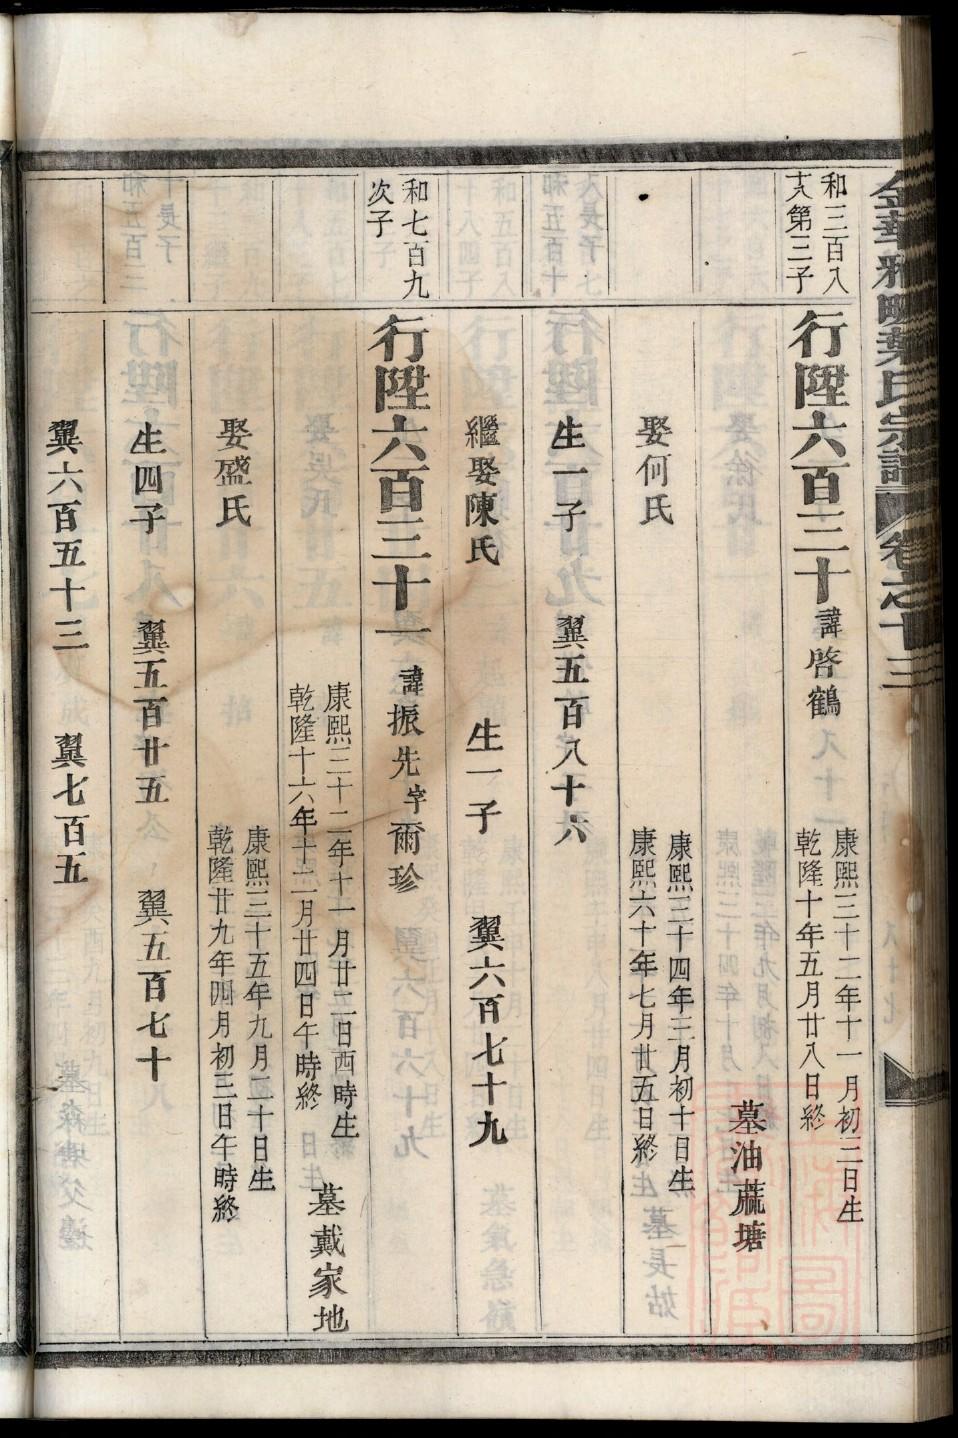 金華雅畈葉氏宗譜 卷之十三
和三百八
十八第三子
行陞六百三十 諱啓鶴
康熙三十二年十一月初三日生
乾隆十年五月廿八日終
墓油蔴塘
娶何氏
康熙三十四年三月初十日生
康熙六十年七月廿五日終
生一子 翼五百八十六
繼娶陳氏 生一子 翼六百七十九
和七百九
次子
行陞六百三十一 諱振先字爾珍
康熙三十二年十一月廿二日酉時生
乾隆十六年十二月廿四日午時終
墓戴家地
娶盛氏
康熙三十五年九月二十日生
乾隆廿九年四月初三日午時終
生四子 翼五百廿五 翼五百七十
翼六百五十三 翼七百五